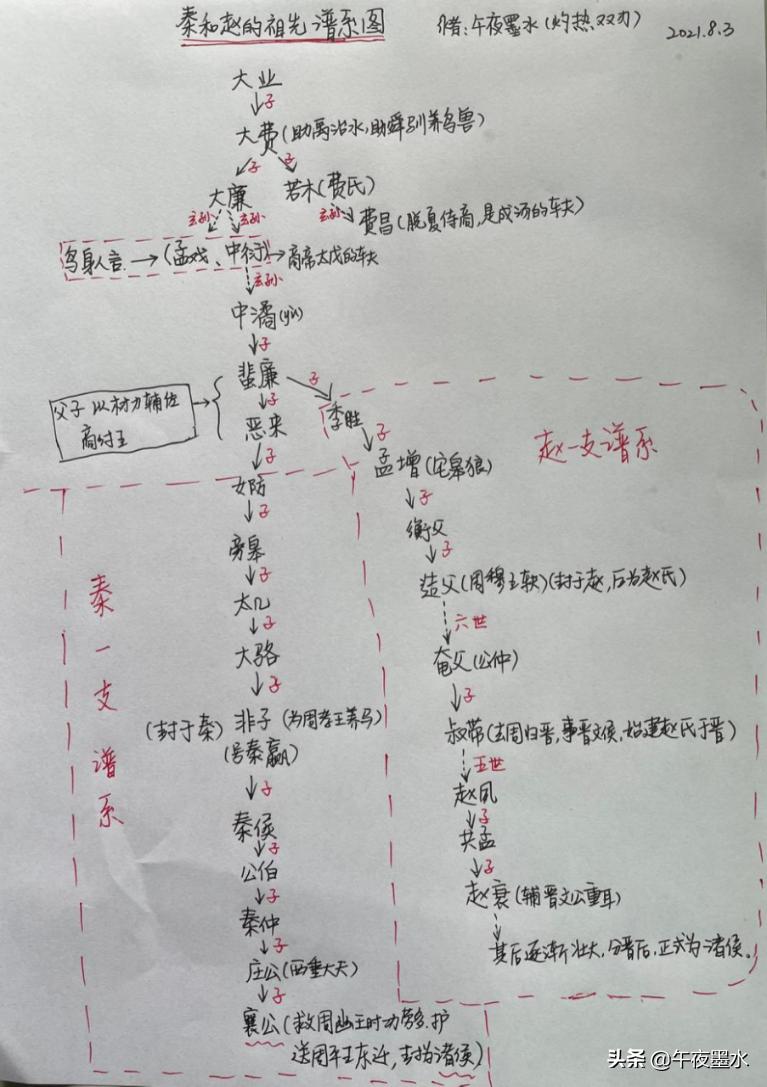 秦和赵的祖先谱系图
作者:午夜墨水(灼热双刃)
2021.8.3
大业
子
大费(助禹治水,助舜驯养鸟兽)
子 子
大廉 若木(费氏)
玄孙 玄孙 玄孙 费昌(脱夏侍商,是成汤的车夫)
鸟身人言 (孟戏、中衍) 商帝太戊的车夫
玄孙
中潏(yù)
子
蜚廉 子
父子以材力辅佐
商纣王
子
恶来 季胜
子 子
孟增(宅皋狼) 赵一支谱系
女防
子 子
衡父
旁皋 子
子 造父(周穆王轪)(封于赵,后为赵氏)
太几
子 六世
大骆 奄父(公仲)
子 子
秦一支谱系
(封于秦) 非子 (为周孝王养马) 叔带(去周归晋,事晋文侯,始建赵氏于晋)
(号秦嬴) 五世
子 赵夙
秦侯 子
子 共孟
公伯 子
子 赵衰(辅晋文公重耳)
秦仲
子 其后逐渐壮大,分晋后,正式为诸侯。
庄公(西垂大夫)
子
襄公(救周幽王时功劳多.护
送周平王东迁,封为诸侯)
头条 @午夜墨水